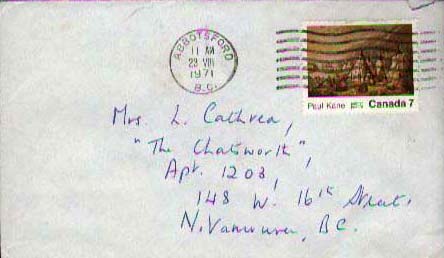 ABBOTSFORD
11 AM
23 VIII
1971
B.C.
Paul Kane Canada 7
Mrs. L. Cathrea,
"The Chatsworth",
Apt. 1203,
148 W. 16th Street,
N. Vancouver, B.C.